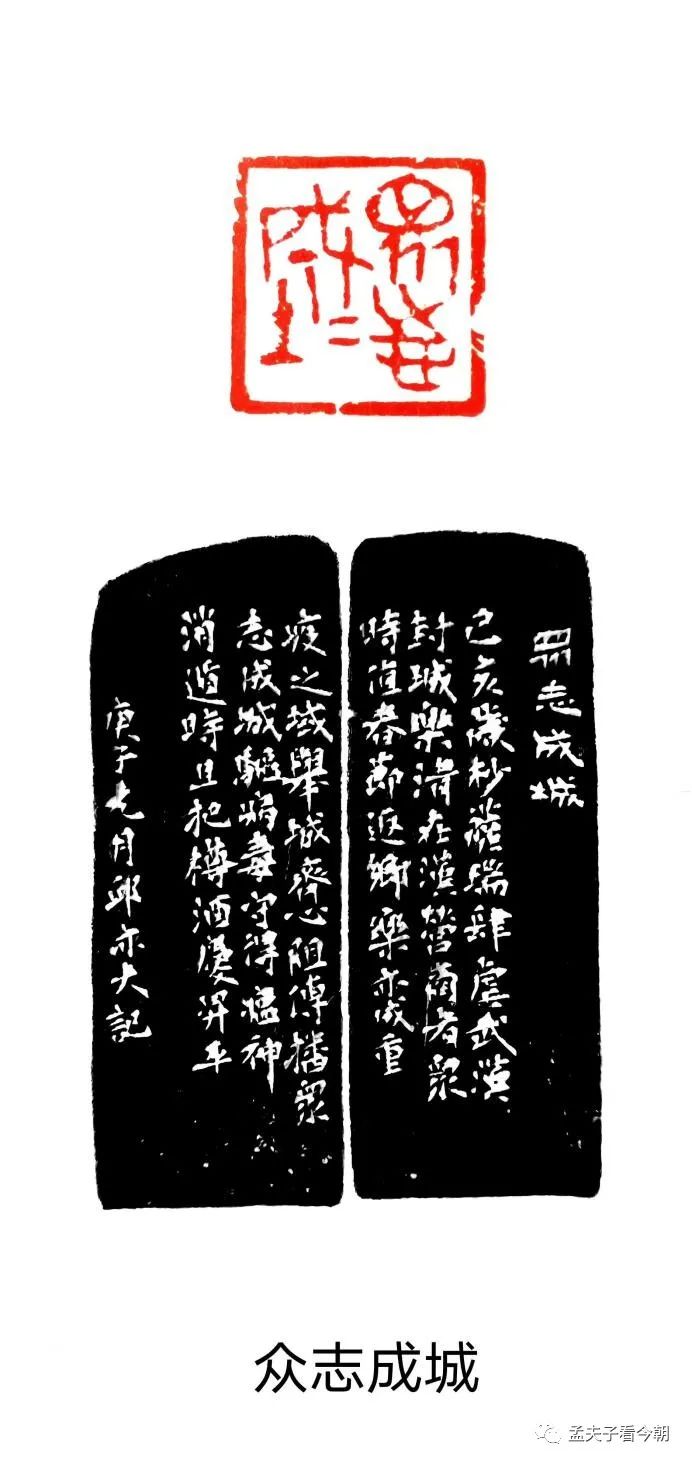 眾志
成城
眾志成城
己亥歲杪肆虐武漢
封城樂清在漢營商者眾
時值春節返鄉樂亦成重
疫之域舉城齊心阻傳播眾
志成城驅病毒守得瘟神
消遁時且把樽酒慶昇平
庚子月邱亦大記
众志成城
孟夫子看今朝